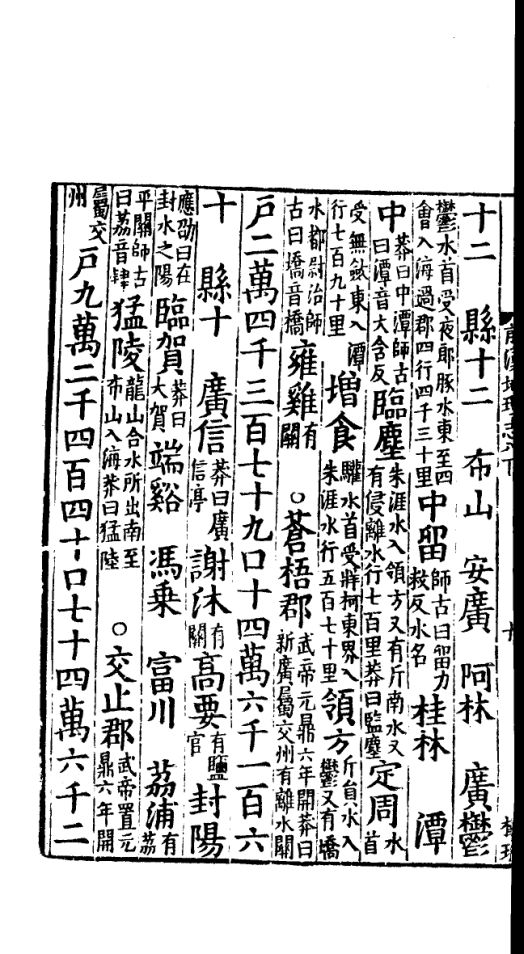 十二　縣十二　布山　安廣　阿林　廣鬱
鬱水首受夜郎豚水東至四會入海過郡四行四千三十里中留師古曰留力救反水名桂林　潭
中莽曰中潭師古曰潭音大含反臨塵朱涯水入領方又有斤南水又有侵離水行七百里莽曰監塵定周水首
受無斂東入潭行七百九十里增食驩水首受牂柯東界入朱涯水行五百七十里領方斤員水入鬱又有墧
水都尉治師古曰墧音橋雍雞有關　○蒼梧郡武帝元鼎六年開莽曰新廣屬交州有離水關
戶二萬四千三百七十九口十四萬六千一百六
十　縣十　廣信莽曰廣信亭謝沐有關高要有鹽官封陽
應劭曰在封水之陽臨賀莽曰大賀端谿　馮乘　富川　荔浦有荔
平關師古曰荔音肄猛陵龍山合水所出南至布山入海莽曰猛陸　○交止郡武帝置元鼎六年開
屬交州戶九萬二千四百四十口七十四萬六千二